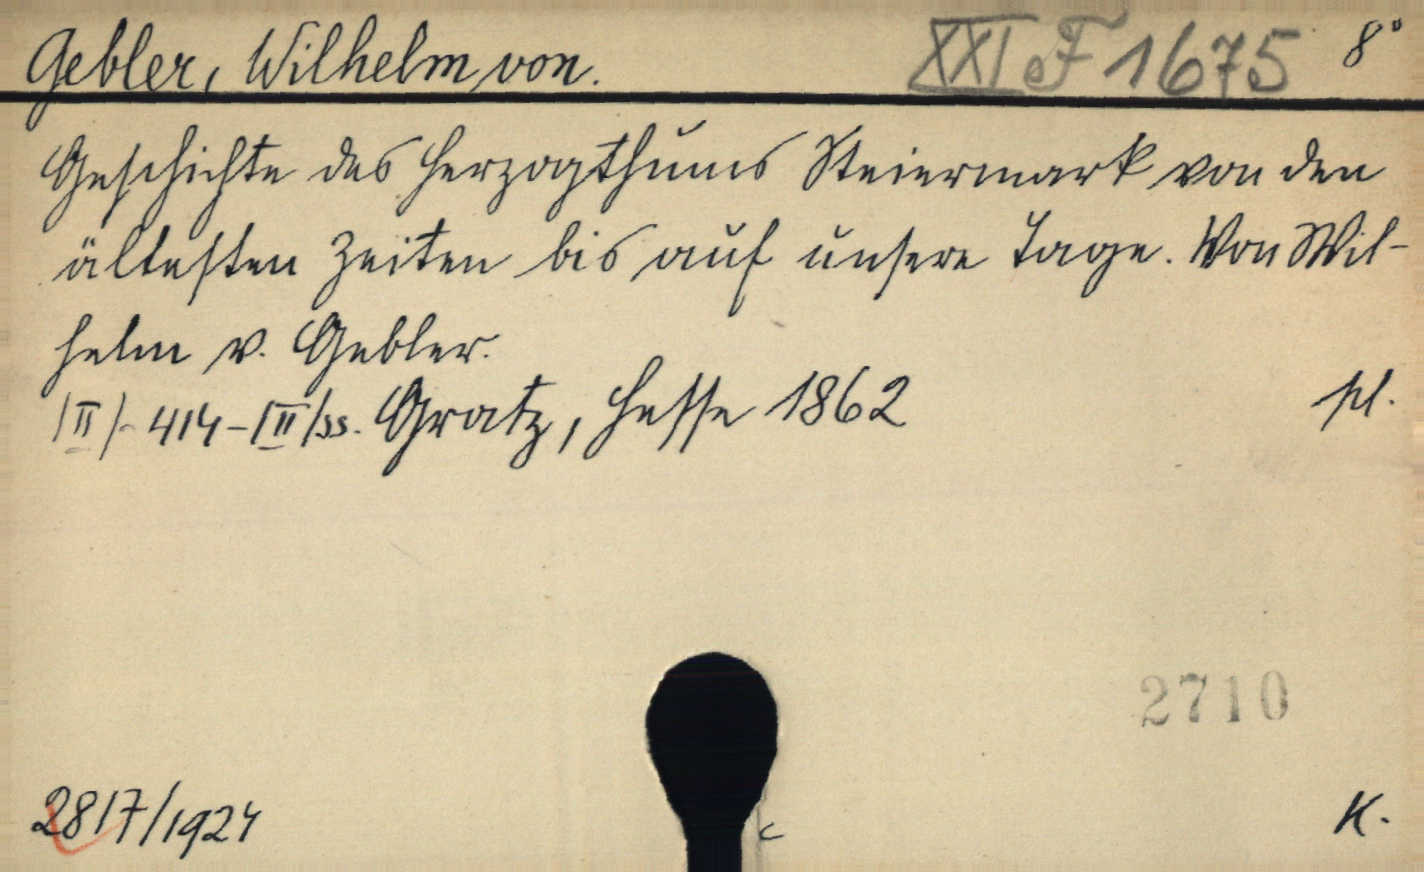 Gebler, Wilhelm von. XXI F 1675 8°
Geschichte des Herzogthums Steiermark von den
ältesten Zeiten bis auf unsere Tage. Von Wil-
helm v. Gebler.
/II/- 414-/II/SS. Gratz, Hesse 1862 pl.
2710
2817/1924 K.